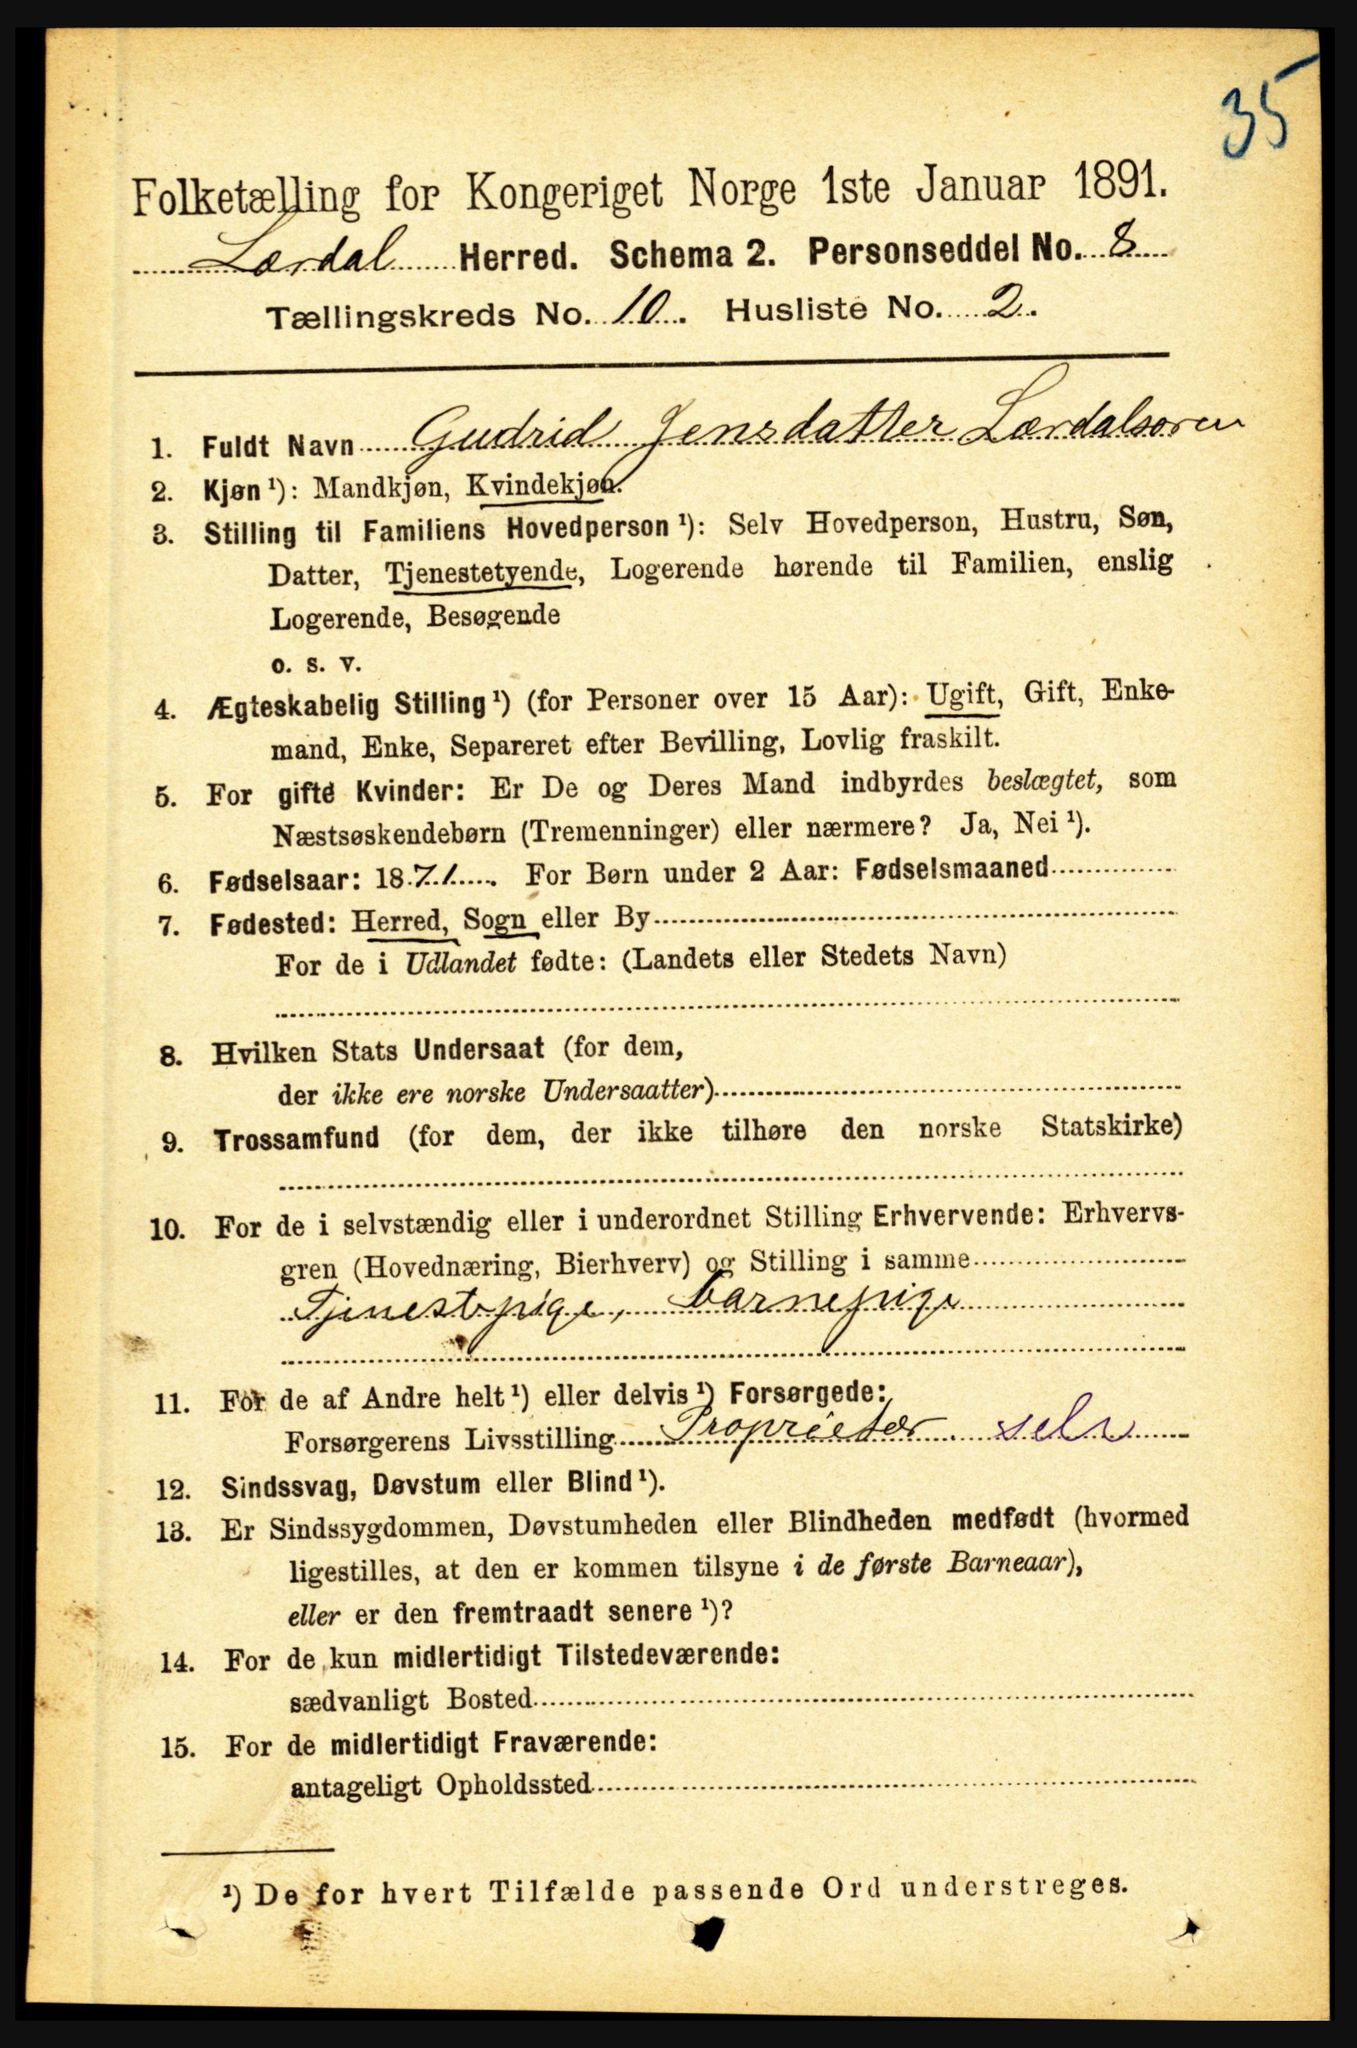 35
Folketælling for Kongeriget Norge 1ste Januar 1891.
Lærdal Herred. Schema 2. Personseddel No. 8
Tællingskreds No. 10. Husliste No. 2.
1. Fuldt Navn Gudrid Jensdatter Lærdalsøren
2. Kjøn ¹): Mandkjøn, Kvindekjøn.
3. Stilling til Familiens Hovedperson ¹): Selv Hovedperson, Hustru, Søn,
Datter, Tjenestetyende, Logerende hørende til Familien, enslig
Logerende, Besøgende
o. s. v.
4. Ægteskabelig Stilling ¹) (for Personer over 15 Aar): Ugift, Gift, Enke-
mand, Enke, Separeret efter Bevilling, Lovlig fraskilt.
5. For gifte Kvinder: Er De og Deres Mand indbyrdes beslægtet, som
Næstsøskendebørn (Tremenninger) eller nærmere? Ja, Nei ¹).
6. Fødselsaar: 1871. For Børn under 2 Aar: Fødselsmaaned
7. Fødested: Herred, Sogn eller By
For de i Udlandet fødte: (Landets eller Stedets Navn)
8. Hvilken Stats Undersaat (for dem,
der ikke ere norske Undersaatter)
9. Trossamfund (for dem, der ikke tilhøre den norske Statskirke)
10. For de i selvstændig eller i underordnet Stilling Erhvervende: Erhvervs-
gren (Hovednæring, Bierhverv) og Stilling i samme
Tjenestepige, barnepige
11. For de af Andre helt ¹) eller delvis ¹) Forsørgede:
Forsørgerens Livsstilling Proprietær. selv
12. Sindssvag, Døvstum eller Blind ¹).
13. Er Sindssygdommen, Døvstumheden eller Blindheden medfødt (hvormed
ligestilles, at den er kommen tilsyne i de første Barneaar),
eller er den fremtraadt senere ¹)?
14. For de kun midlertidigt Tilstedeværende:
sædvanligt Bosted
15. For de midlertidigt Fraværende:
antageligt Opholdssted
¹) De for hvert Tilfælde passende Ord understreges.